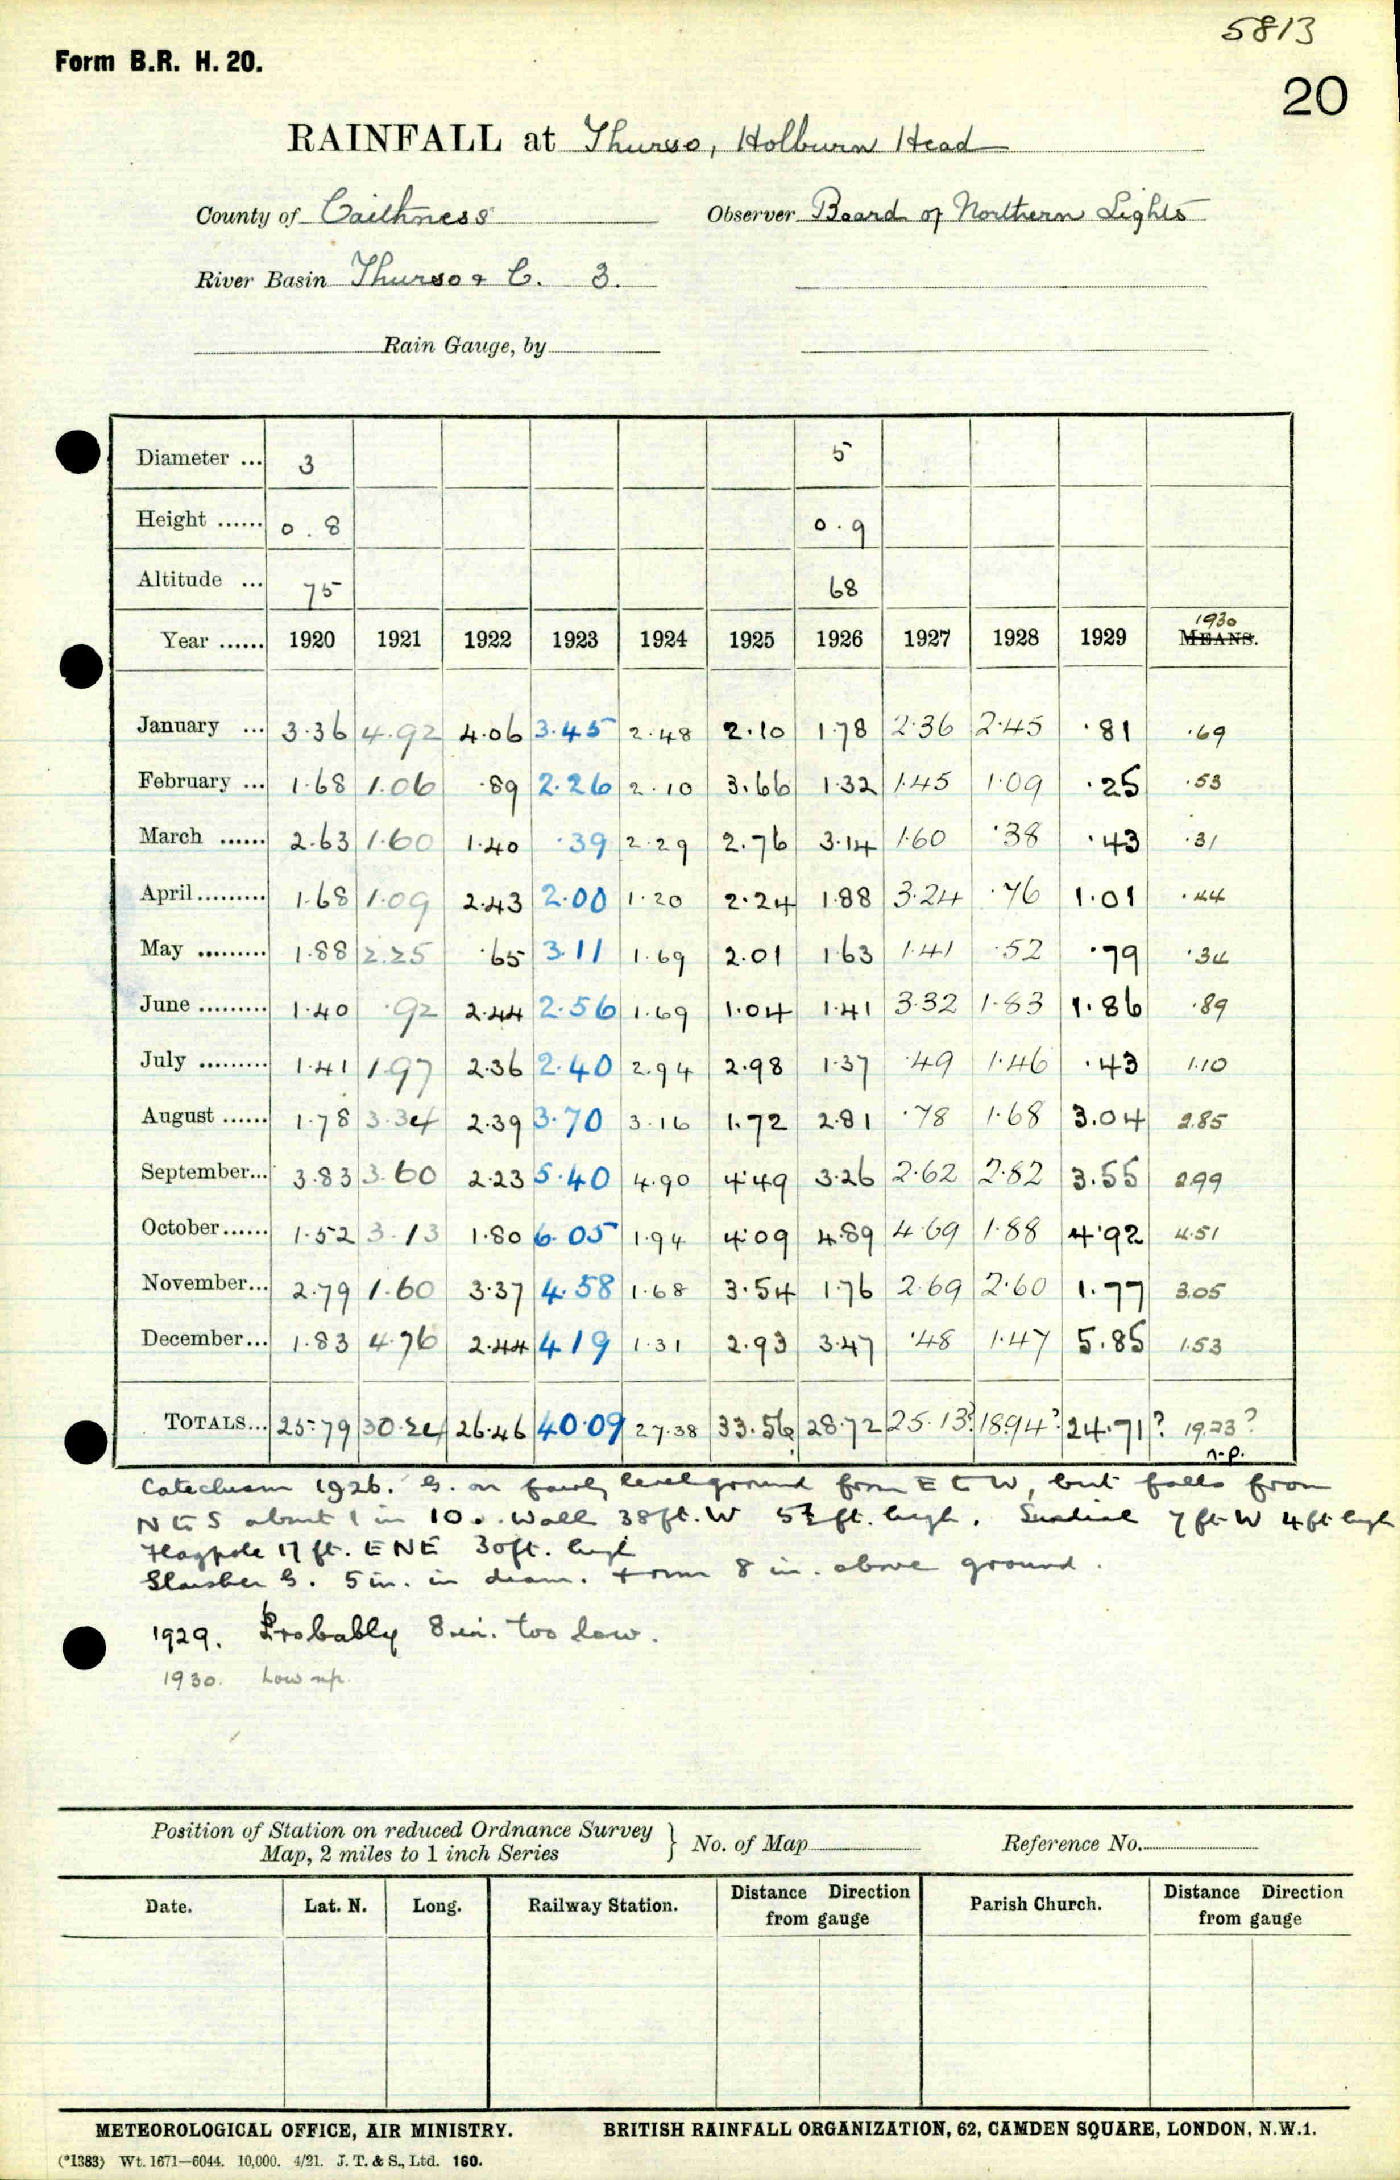 5813
Form B.R. H. 20.
20
RAINFALL at Thurso, Holburn Head
County of Caithness Observer Board of Northern Lights
River Basin Thurso & C. 3.
Rain Gauge, by
Diameter ... 3 5
Height ...... 0.8 0.9
Altitude ... 75 68
1930
Year ...... 1920 1921 1922 1923 1924 1925 1926 1927 1928 1929 MEANS.
January ... 3.36 4.92 4.06 3.45 2.48 2.10 1.78 2.36 2.45 .81 .69
February ... 1.68 1.06 .89 2.26 2.10 3.66 1.32 1.45 1.09 .25 .53
March ...... 2.63 1.60 1.40 .39 2.29 2.76 3.14 1.60 .38 .43 .31
April......... 1.68 1.09 2.43 2.00 1.20 2.24 1.88 3.24 .76 1.01 .44
May ......... 1.88 2.25 .65 3.11 1.69 2.01 1.63 1.41 .52 .79 .34
June ......... 1.40 .92 2.44 2.56 1.69 1.04 1.41 3.32 1.83 1.86 .89
July ......... 1.41 1.97 2.36 2.40 2.94 2.98 1.37 .49 1.46 .43 1.10
August ...... 1.78 3.34 2.39 3.70 3.16 1.72 2.81 .78 1.68 3.04 2.85
September... 3.83 3.60 2.23 5.40 4.90 4.49 3.26 2.62 2.82 3.55 2.99
October...... 1.52 3.13 1.80 6.05 1.94 4.09 4.89 4.69 1.88 4.92 4.51
November... 2.79 1.60 3.37 4.58 1.68 3.54 1.76 2.69 2.60 1.77 3.05
December... 1.83 4.76 2.44 4.19 1.31 2.93 3.47 .48 1.47 5.85 1.53
TOTALS... 25.79 30.24 26.46 40.09 27.38 33.56 28.72 25.13? 18.94? 24.71? 19.23?
n.p.
Catechism 1926. G. on fairly level ground from E to W, but falls from
N to S about 1 in 10. Wall 38ft. W 5½ft. high. Sundial 7 ft W 4 ft high
Flagpole 17 ft. ENE 30ft. high
G. 5 in. in diam. 8 in. above ground.
1929. Probably 8 in. too low.
1930. Low n.p.
Position of Station on reduced Ordnance Survey Map, 2 miles to 1 inch Series } No. of Map Reference No.
Date. Lat. N. Long. Railway Station. Distance Direction from gauge Parish Church. Distance Direction from gauge
METEOROLOGICAL OFFICE, AIR MINISTRY. BRITISH RAINFALL ORGANIZATION, 62, CAMDEN SQUARE, LONDON, N.W.1.
(*1383) Wt. 1671—6044. 10,000. 4/21. J. T. & S., Ltd. 160.